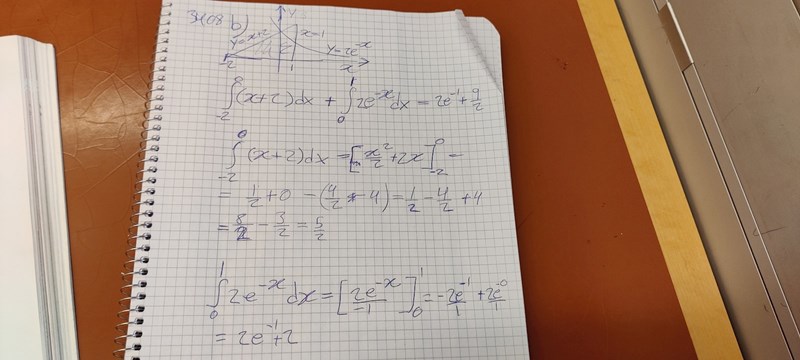 3408 b)
y
y=x+2 x=1 y=2e^-x
-2 1 x
∫_{-2}^{0} (x+2)dx + ∫_{0}^{1} 2e^{-x}dx = 2e^{-1} + 9/2
∫_{-2}^{0} (x+2)dx = [x^2/2 + 2x]_{-2}^{0} =
= 1/2 + 0 - (4/2 - 4) = 1/2 - 4/2 + 4
= 8/2 - 3/2 = 5/2
∫_{0}^{1} 2e^{-x}dx = [2e^{-x}/-1]_{0}^{1} = -2e^{-1}/1 + 2e^{-0}/1
= 2e^{-1} + 2